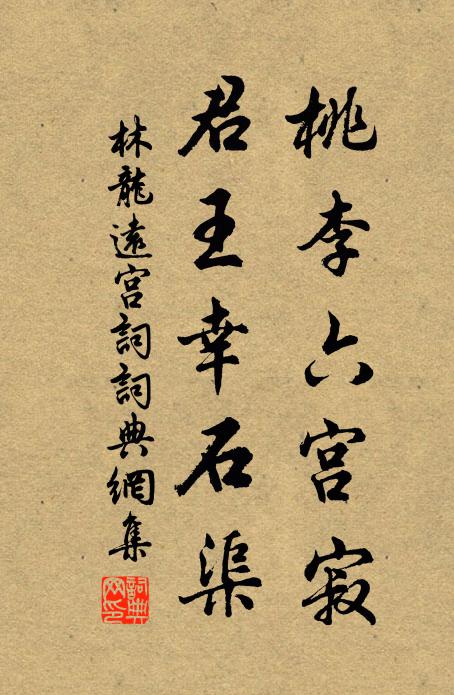 桃李六宫寂
君王幸石渠
林龍遠宫詞詞典網集
詞典网印